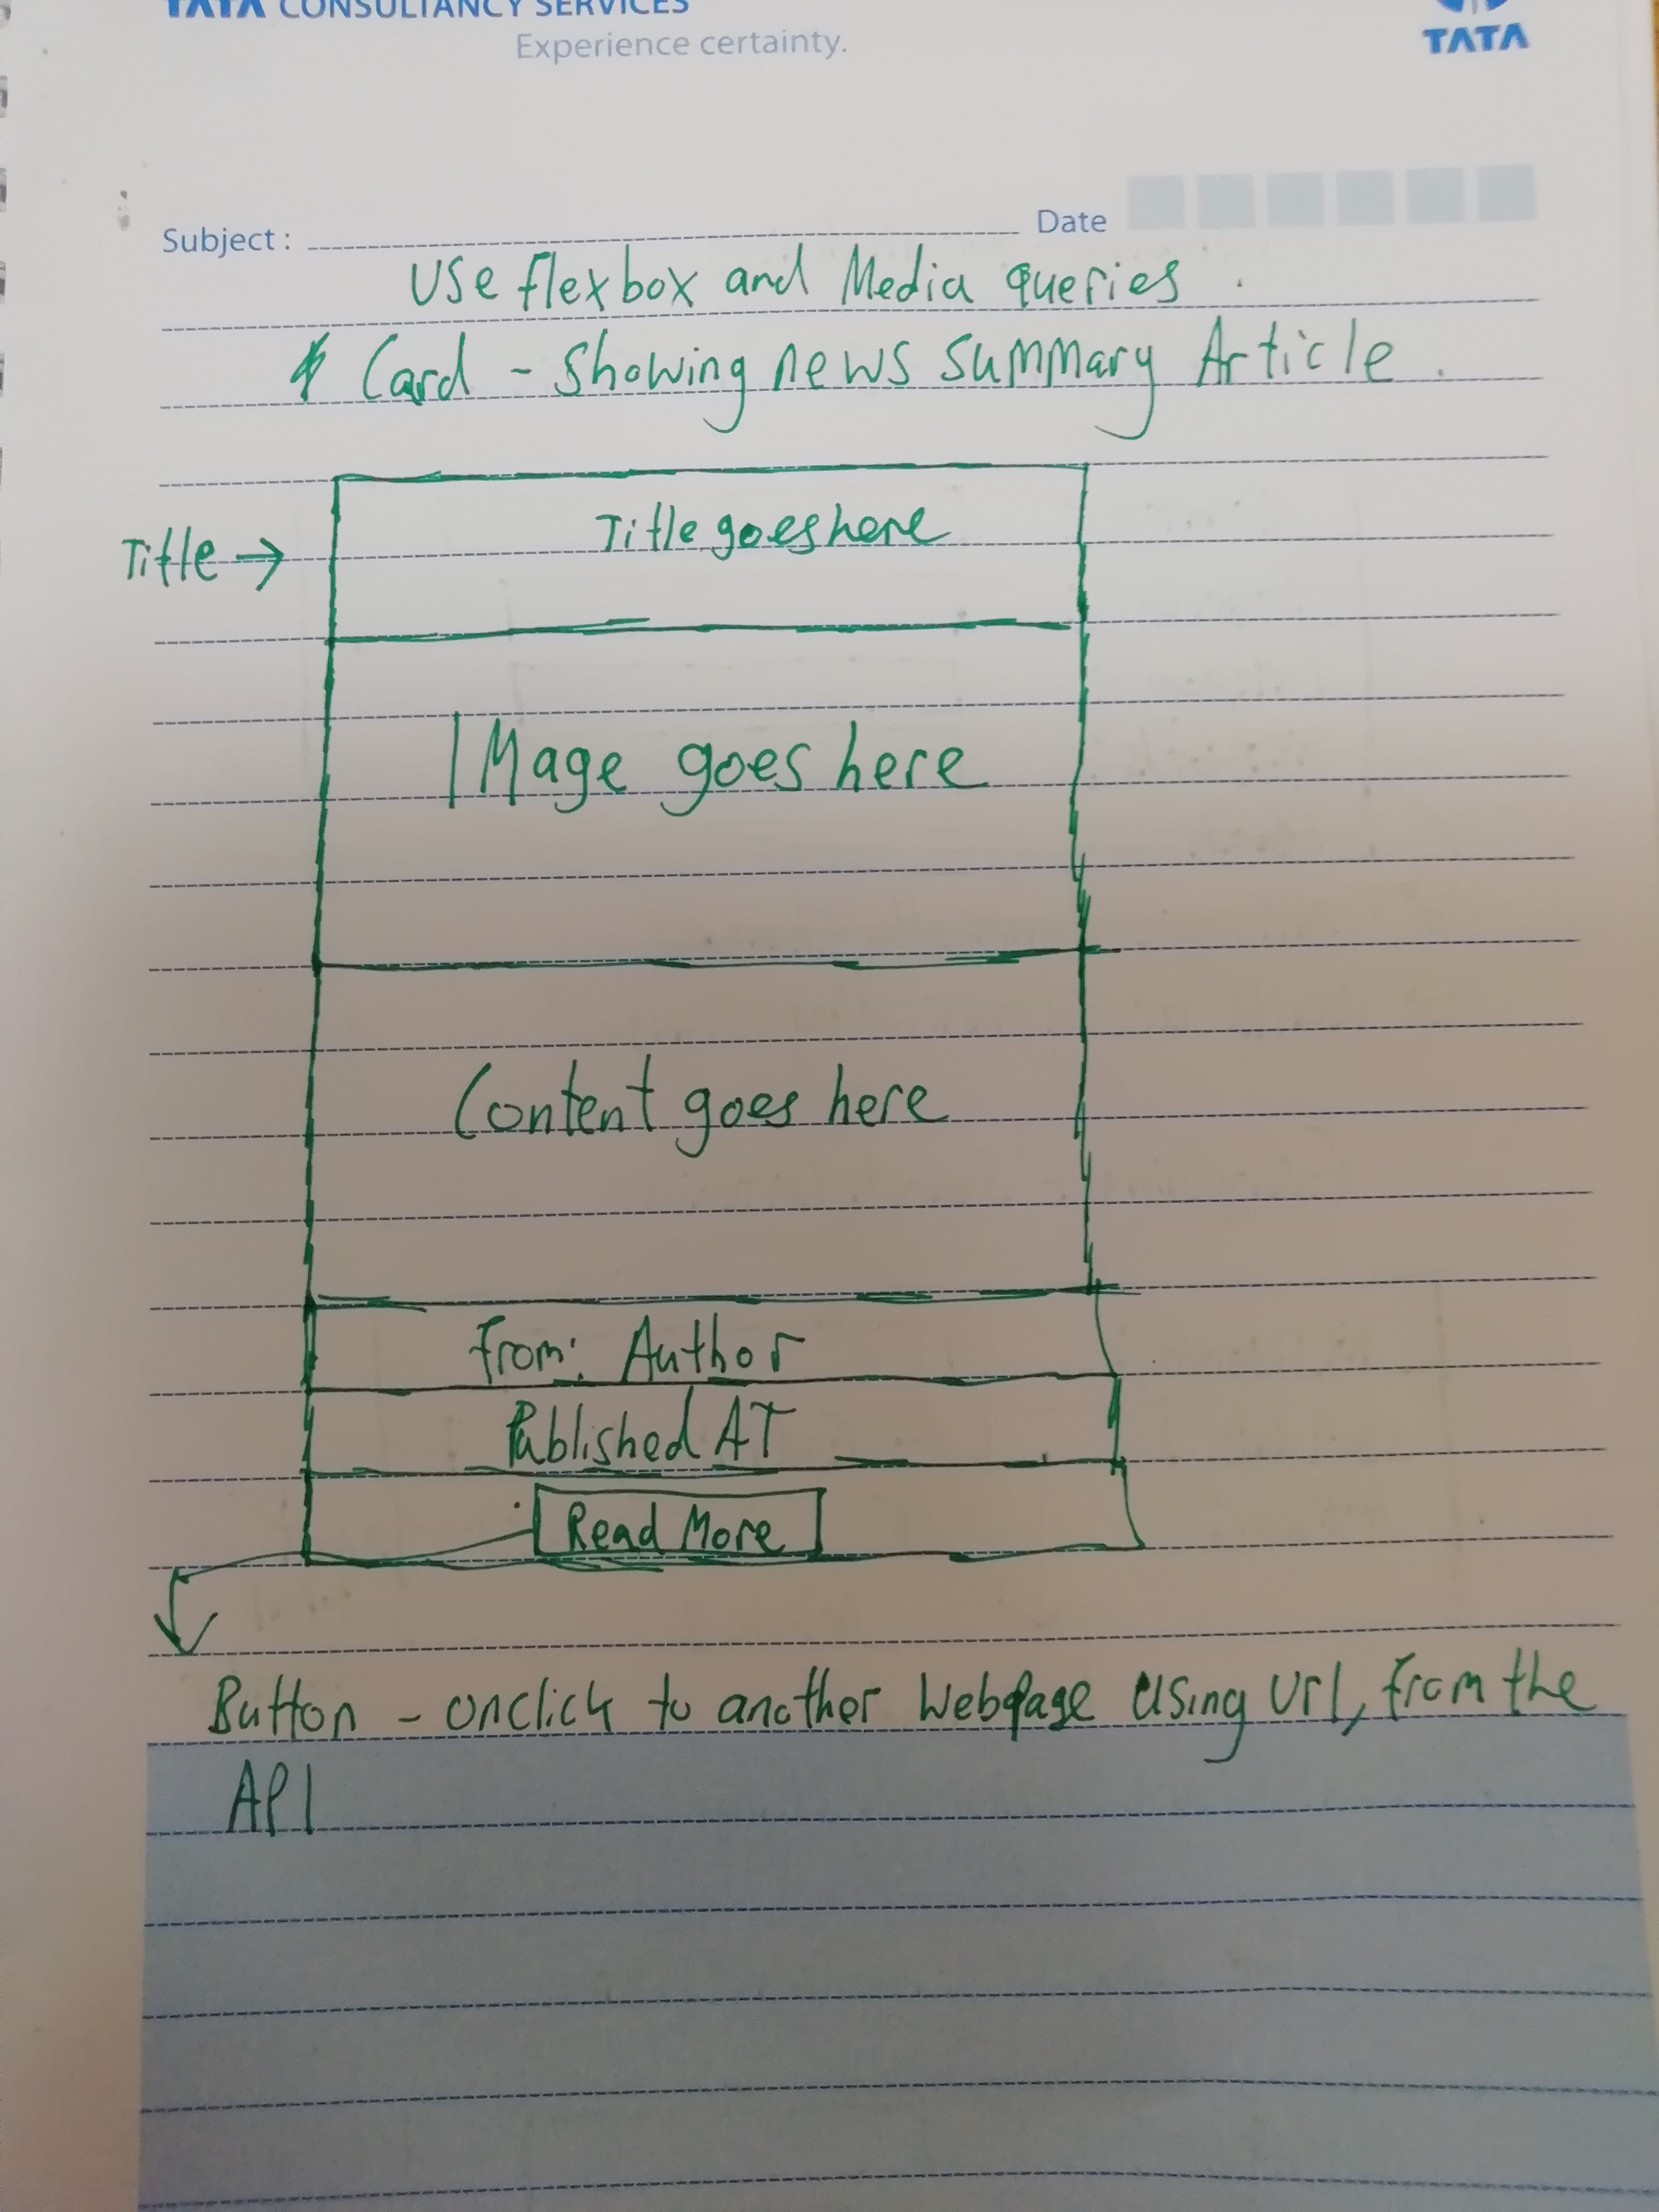 TATA CONSULTANCY SERVICES
Experience certainty.
TATA
Subject :
Date
Use flexbox and Media queries .
Card - Showing news summary Article .
Title →
Title goes here
IMage goes here
Content goes here
From: Author
Published AT
Read More
Button - onclick to another Webpage using Url, from the
API